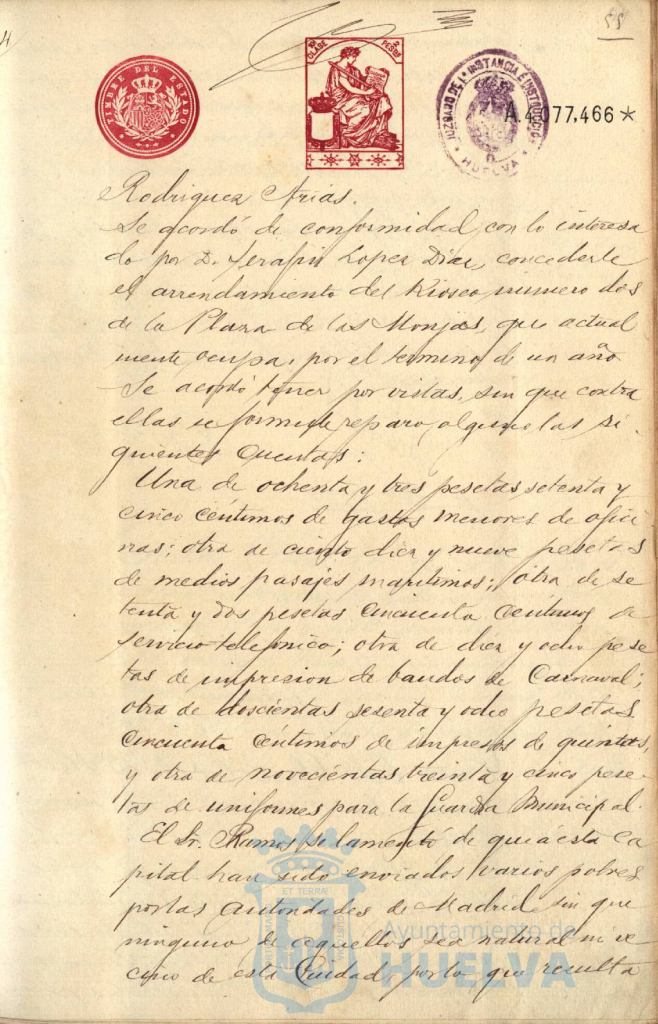 55
TIMBRE DEL ESTADO
10ª CLASE 2 PESETAS
JUZGADO DE 1ª INSTANCIA E INSTRUCCION
HUELVA
A.4.077,466 *
Rodriguez Arias.
Se acordó de conformidad con lo interesa
do por D. Serafin Lopez Diaz, concederle
el arrendamiento del Kiosco número dos
de la Plaza de las Monjas, que actual
mente ocupa, por el termino de un año
Se acordó tener por vistas, sin que contra
ellas se formule reparo alguno las si-
guientes cuentas:
Una de ochenta y tres pesetas setenta y
cinco céntimos de gastos menores de ofici
nas; otra de ciento diez y nueve pesetas
de medios pasajes maritimos; otra de se
tenta y dos pesetas cincuenta centimos de
servicio telefonico; otra de diez y ocho pese
tas de impresion de bandos de Carnaval;
otra de doscientas sesenta y ocho pesetas
cincuenta céntimos de impresos de quintas,
y otra de novecientas treinta y cinco pese-
tas de uniformes para la Guardia Municipal.
El Sr. Ramos se lamentó de que a esta Ca
pital han sido enviados varios pobres
por las autoridades de Madrid sin que
ninguno de aquellos sea natural ni ve
cino de esta Ciudad por lo que resulta
Ayuntamiento de
HUELVA